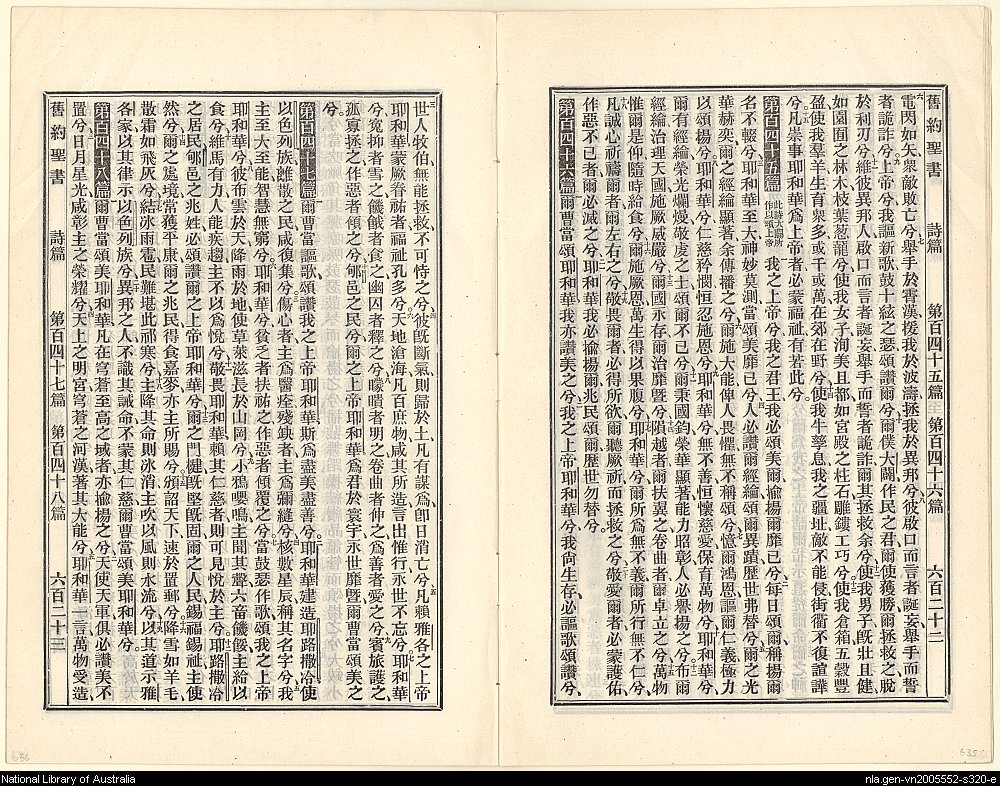 舊約聖書 詩篇 第百四十五篇至第百四十六篇 六百二十二
電閃如矢、衆敵敗亡兮、舉手於霄漢、援我於波濤、拯我於異邦兮、彼啟口而言者誕妄、舉手而誓
者詭詐兮、上帝兮、我謳新歌、鼓十絃之瑟、頌讚爾兮、爾僕大闢、作民之君、爾使獲勝、爾拯救之、脫
於利刃兮、維彼異邦人、啟口而言者誕妄、舉手而誓者詭詐、爾其拯救余兮、使我男子、旣壯且健、
如園囿之林木、枝葉葱蘢兮、使我女子洵美且都、如宮殿之柱石、雕鏤工巧兮、使我倉箱、五穀豐
盈、使我羣羊、生育衆多、或千或萬、在郊在野兮、使我牛孳息、我之疆址、敵不能侵、街衢不復諠譁
兮、凡崇事耶和華爲上帝者、必蒙福祉有若此兮。
第百四十五篇 此詩大闢所作以頌上帝 我之上帝兮、我之君王、我必頌美爾、揄揚爾靡已兮、每日頌爾、稱揚爾
名不輟兮、耶和華至大、神妙莫測、當頌美靡已兮、人必讚爾經綸、頌爾異蹟、歷世弗替兮、爾之光
華赫奕、爾之經綸顯著、余傳播之兮、爾施大能、俾人畏懼、無不稱頌兮、憶爾鴻恩、謳爾仁義、極力
以頌揚兮、耶和華兮、仁慈矜憫、恒忍施恩兮、耶和華兮、無不善、恒懷慈愛、保育萬物兮、耶和華兮、
爾有經綸、榮光爛熳、敬虔之士、頌爾不已兮、爾秉國鈞、榮華顯著、能力昭彰、人必譽揚之兮、布爾
經綸、治理天國、施厥威嚴兮、爾國永存、爾治靡曁兮、隕越者爾扶翼之、卷曲者爾卓立之兮、萬物
惟爾是仰、隨時給食兮、爾施厥恩、萬生得以果腹兮、耶和華兮、爾所爲無不義、爾所行無不仁兮、
凡誠心祈禱爾者、爾左右之兮、敬畏爾者必得所欲、爾聽厥祈、而拯救之兮、敬愛爾者必蒙護佑、
作惡不已者、爾必滅之兮、耶和華兮、我必揄揚爾、兆民頌爾、歷世勿替兮。
第百四十六篇 爾曹當頌耶和華、我亦讚美之兮、我之上帝耶和華兮、我尚生存、必謳歌頌讚兮、
舊約聖書 詩篇 第百四十七篇 第百四十八篇 六百二十三
世人牧伯、無能拯救、不可恃之兮、彼旣斷氣、則歸於土、凡有謀爲、卽日消亡兮、凡賴雅各之上帝
耶和華、蒙厥眷祐者、福祉孔多兮、天地滄海、凡百庶物、咸其所造、言出惟行、永世不忘兮、耶和華
兮、冤抑者雪之、饑餓者食之、幽囚者釋之兮、矇瞶者明之、卷曲者伸之、爲善者愛之兮、賓旅護之、
孤寡拯之、作惡者傾之兮、郇邑之民兮、爾之上帝耶和華爲君、於寰宇永世靡曁、爾曹當頌美之
兮。
第百四十七篇 爾曹當謳歌、頌讚我之上帝耶和華、斯爲盡美盡善兮、耶和華建造耶路撒冷、使
以色列族離散之民、咸復集兮、傷心者主爲醫痊、殘缺者主爲彌縫兮、核數星辰、稱其名字兮、我
主至大至能、智慧無窮兮、耶和華兮、貧乏者扶祐之、作惡者傾覆之兮、當鼓瑟作歌、頌我之上帝
耶和華兮、彼布雲於天、降雨於地、使草萊滋長於山岡兮、小鴉嚶鳴、主聞其聲、六畜饑餒、主給以
食兮、維馬有力、人能疾趨、主不以爲悅兮、敬畏耶和華、賴其仁慈者、則可見悅於主兮、耶路撒冷
之居民、郇邑之兆姓、必頌讚爾之上帝耶和華兮、爾之門楗旣堅旣固、爾之人民錫福錫祉、主使
然兮、爾之境、當獲平康、爾之兆民、得食嘉麥、亦主所賜兮、頒詔天下、速於置郵兮、降雪如羊毛、
散霜如飛灰兮、結冰雨雹、民難堪此祁寒兮、主降其命則冰消、主吹以風則水流兮、以其道示雅
各家、以其律示以色列族兮、異邦之人、不識其誡命、不蒙其仁慈、爾曹當頌美耶和華兮。
第百四十八篇 爾曹當頌美耶和華、凡在穹蒼至高之域者、亦揄揚之兮、天使天軍、俱必讚美不
置兮、日月星光、咸彰主之榮耀兮、天上之明宮、穹蒼之河漢、著其大能兮、耶和華一言、萬物受造
636
635
National Library of Australia
nla.gen-vn2005552-s320-e